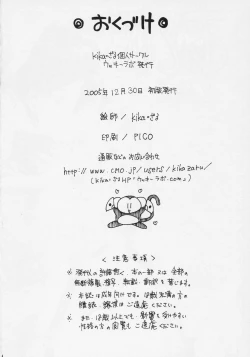 おくづけ
kika=ざる個人サークル
ウッキーラボ発行
2005年12月30日 初版発行
絵師 / kika=ざる
印刷 / PICO
通販などのお問い合わせ
http://www.cmo.jp/users/kikazaru/
(kika=ざるHP "ウッキーラボ.com")
< 注意事項 >
※ 発行人の許可無く、本の一部又は全部の
無断複製、複写、転載、翻訳を禁じます。
※ 本誌は成年向けです。18歳未満の方の
購読、購求はご遠慮ください。
※ また、18歳以上でも、影響を受けやすい
性格の方の閲覧もご遠慮ください。